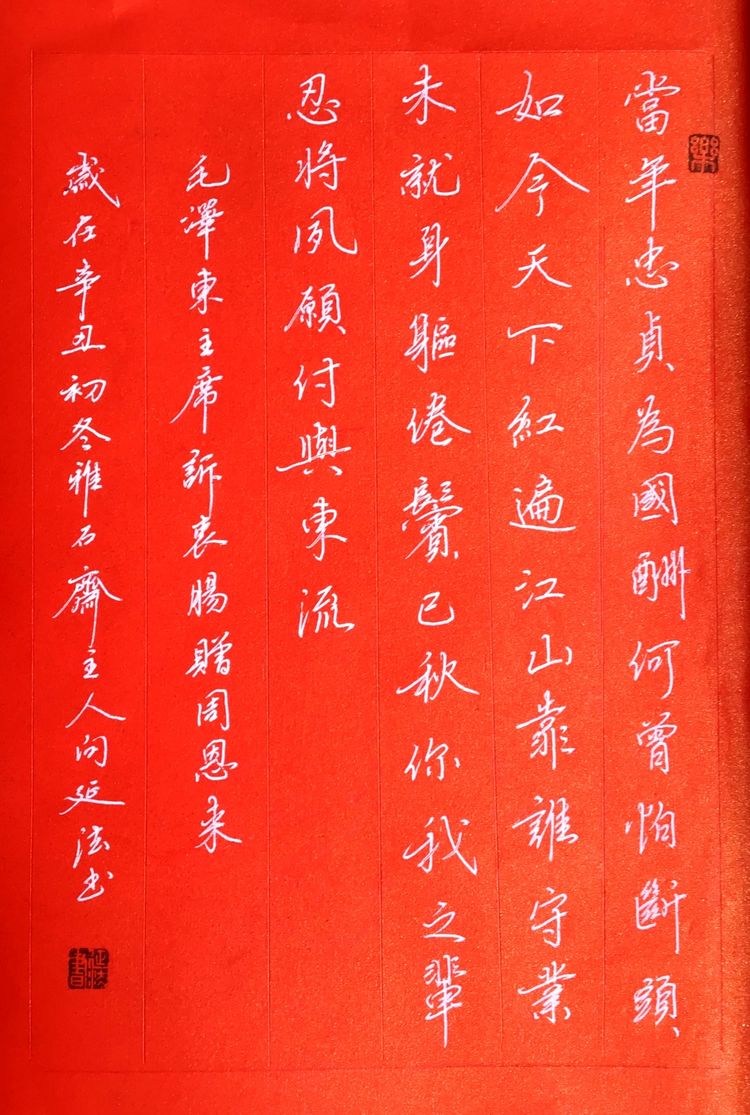 當年忠貞為國酬何曾怕斷頭
如今天下紅遍江山靠誰守業
未就身軀倦鬢已秋你我之輩
忍將夙願付與東流
毛澤東主席訴衷腸贈周恩来
歲在辛丑初冬雅石齋主人向延法书
延法書